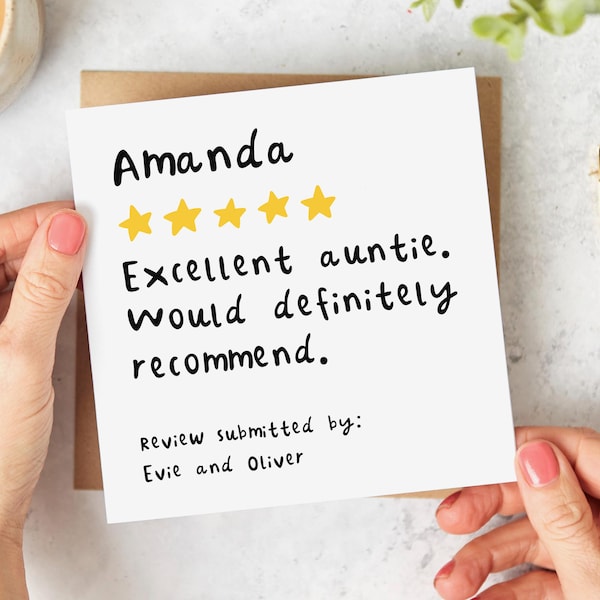 Amanda
Excellent auntie.
Would definitely
recommend.
Review submitted by:
Evie and Oliver